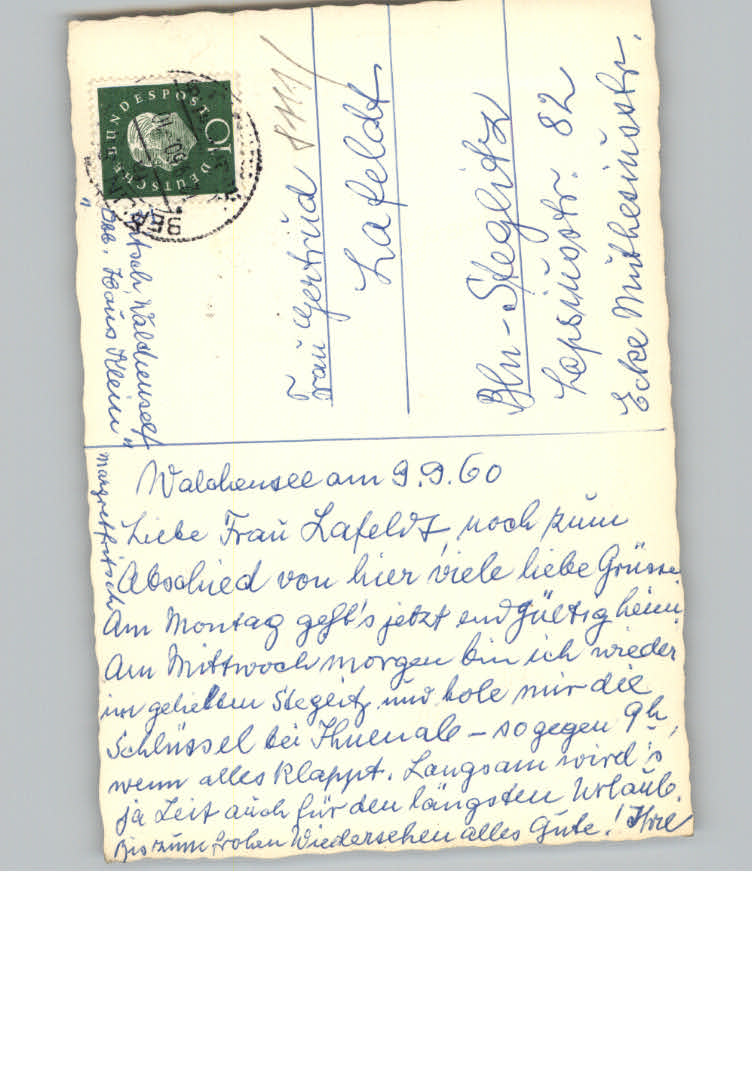 Walchensee am 9.9.60
Liebe Frau Lafeldt, noch zum
Abschied von hier viele liebe Grüsse.
Am Montag geht's jetzt endgültig heim.
Am Mittwoch morgen bin ich wieder
im geliebten Steglitz und hole mir die
Schlüssel bei Ihnen ab – so gegen 9h,
wenn alles klappt. Langsam wird's
ja Zeit auch für den längsten Urlaub.
Bis zum frohen Wiedersehen alles Gute! Ihre
Margret Fritsch
Frau Gertrud
Lafeldt
Bln-Steglitz
Lepsiusstr. 82
Ecke Muthesiusstr.
Walchensee
Obb., "Haus Klein"
DEUTSCHE BUNDESPOST
10